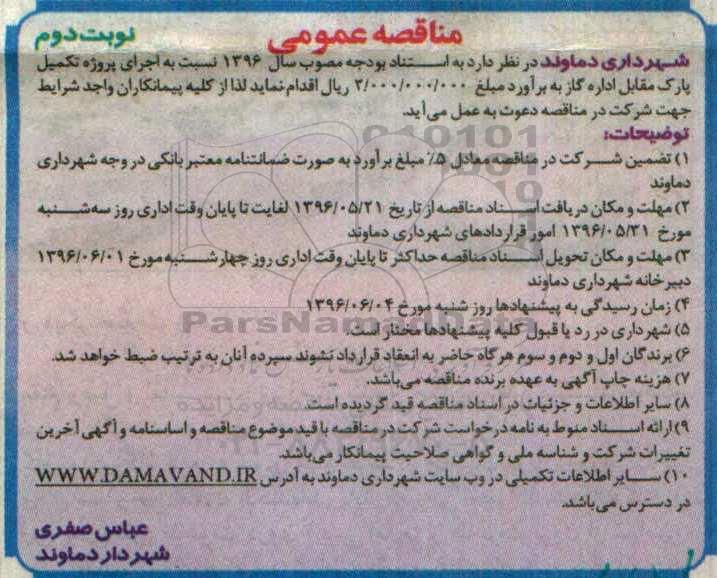 مناقصه عمومی
نوبت دوم
شهرداری دماوند در نظر دارد به استناد بودجه مصوب سال ۱۳۹۶ نسبت به اجرای پروژه تکمیل
پارک مقابل اداره گاز به برآورد مبلغ ۲/۰۰۰/۰۰۰/۰۰۰ ریال اقدام نماید لذا از کلیه پیمانکاران واجد شرایط
جهت شرکت در مناقصه دعوت به عمل می‌آید.
توضیحات:
۱) تضمین شرکت در مناقصه معادل ۵٪ مبلغ برآورد به صورت ضمانتنامه معتبر بانکی در وجه شهرداری
دماوند
۲) مهلت و مکان دریافت اسناد مناقصه از تاریخ ۱۳۹۶/۰۵/۲۱ لغایت تا پایان وقت اداری روز سه‌شنبه
مورخ ۱۳۹۶/۰۵/۳۱ امور قراردادهای شهرداری دماوند
۳) مهلت و مکان تحویل اسناد مناقصه حداکثر تا پایان وقت اداری روز چهارشنبه مورخ ۱۳۹۶/۰۶/۰۱
دبیرخانه شهرداری دماوند
۴) زمان رسیدگی به پیشنهادها روز شنبه مورخ ۱۳۹۶/۰۶/۰۴
ParsNamadData
۵) شهرداری در رد یا قبول کلیه پیشنهادها مختار است.
۶) برندگان اول و دوم و سوم هرگاه حاضر به انعقاد قرارداد نشوند سپرده آنان به ترتیب ضبط خواهد شد.
۷) هزینه چاپ آگهی به عهده برنده مناقصه می‌باشد.
۸) سایر اطلاعات و جزئیات در اسناد مناقصه قید گردیده است.
۹) ارائه اسناد منوط به نامه درخواست شرکت در مناقصه با قید موضوع مناقصه و اساسنامه و آگهی آخرین
تغییرات شرکت و شناسه ملی و گواهی صلاحیت پیمانکار می‌باشد.
۱۰) سایر اطلاعات تکمیلی در وب سایت شهرداری دماوند به آدرس WWW.DAMAVAND.IR
در دسترس می‌باشد.
عباس صفری
شهردار دماوند